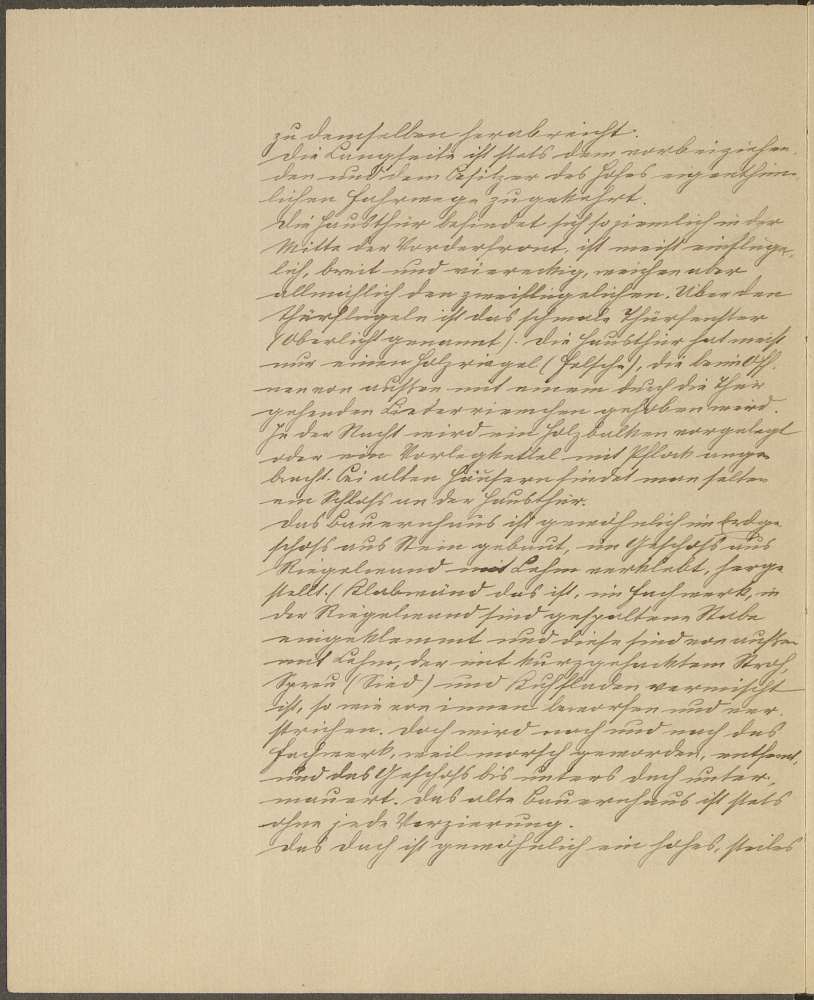 zu demselben herabreicht.
Die Langseite ist stets dem vorbeiziehen-
den und dem Besitzer des Hofes eigenthüm-
lichen Fahrwege zugekehrt.
Die Hausthür befindet sich so ziemlich in der
Mitte der Vorderfront, ist meist einflüge-
lich, breit und viereckig, weichen aber
allmählich den zweiflügelichen. Über den
Thürflügeln ist das schmale Thürfenster
(Oberlicht genannt). Die Hausthür hat meist
nur einen Holzriegel (Felsche), die beim Öff-
nen von aussen mit einem durch die Thür
gehenden Lederriemchen gehoben wird.
In der Nacht wird ein Holzbalken vorgelegt
oder ein Vorlegkettel mit Pflock ange-
bracht. Bei alten Häusern findet man selten
ein Schloss an der Hausthür.
Das Bauernhaus ist gewöhnlich im Erdge-
schoss aus Stein gebaut, im Geschoss aus
Riegelwand mit Lehm verklebt, herge-
stellt. (Klabwänd das ist, im Fachwerk, in
der Riegelwand sind gespaltene Stabe
eingeklemmt und diese sind von aussen
mit Lehm, der mit kurzgehacktem Stroh,
Spreu (Sied) und Kuhfladen vermischt
ist, so wie von innen beworfen und ver-
strichen. Doch wird nach und nach das
Fachwerk, weil morsch geworden, entfernt,
und das Geschoss bis unters Dach unter-
mauert. Das alte Bauernhaus ist stets
ohne jede Verzierung.
Das Dach ist gewöhnlich ein hohes, steiles